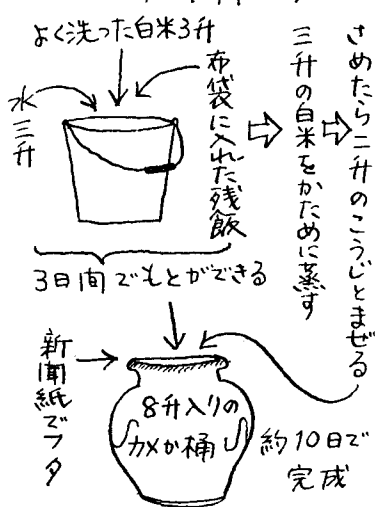 よく洗った白米3升
水三升
布袋に入れた残飯
三升の白米をかために蒸す
さめたら二升のこうじとまぜる
3日間でもとができる
新聞紙でフタ
8升入りの
カメか桶
約10日で
完成